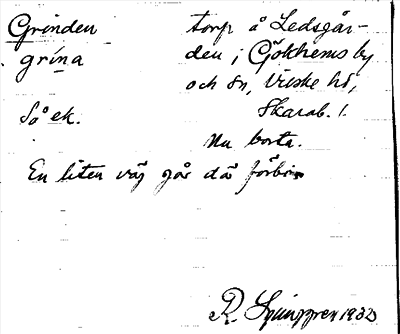 Grinden torp å Ledsgår-
grina den i Gökhems by
och sn, Vilske hd,
Så ek. Skarab. l.
Nu borta.
En liten väg går där förbi
R. 1932